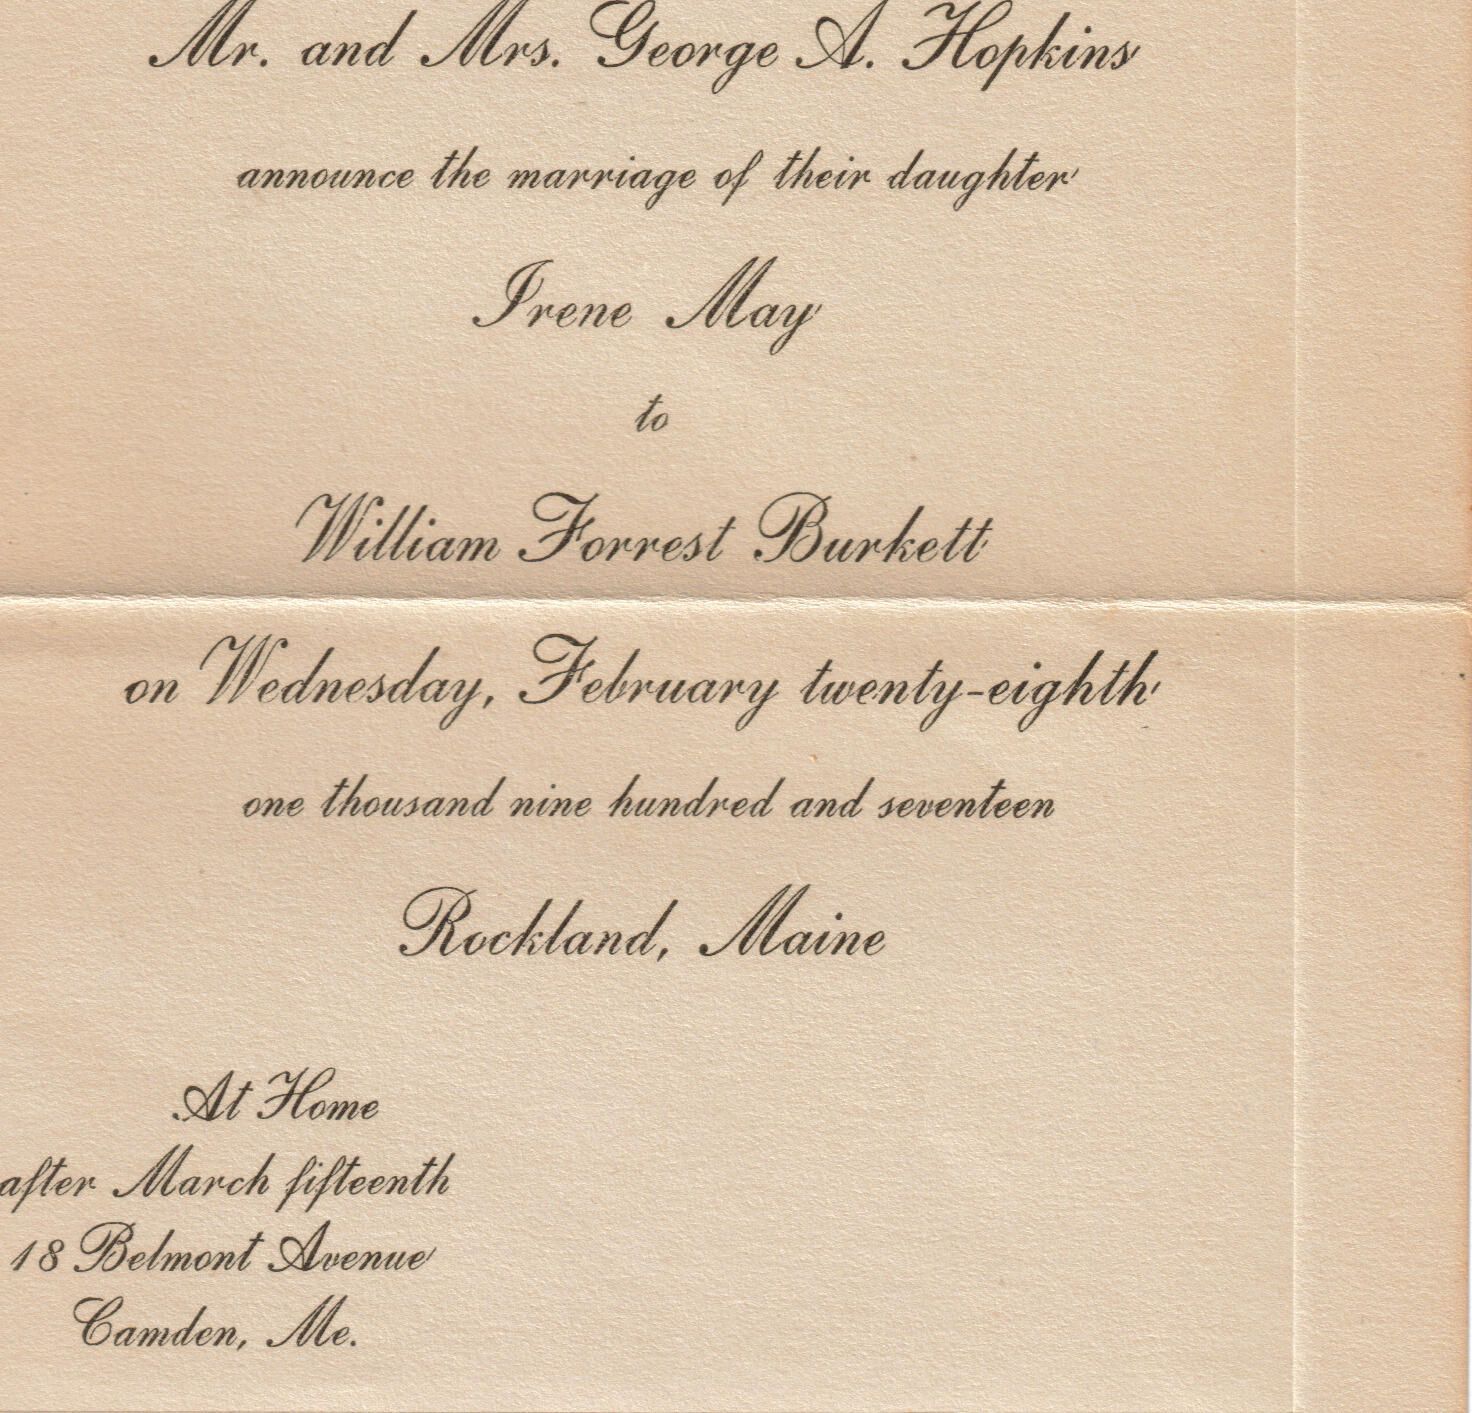 Mr. and Mrs. George A. Hopkins
announce the marriage of their daughter
Irene May
to
William Forrest Burkett
on Wednesday, February twenty-eighth
one thousand nine hundred and seventeen
Rockland, Maine
At Home
after March fifteenth
18 Belmont Avenue
Camden, Me.